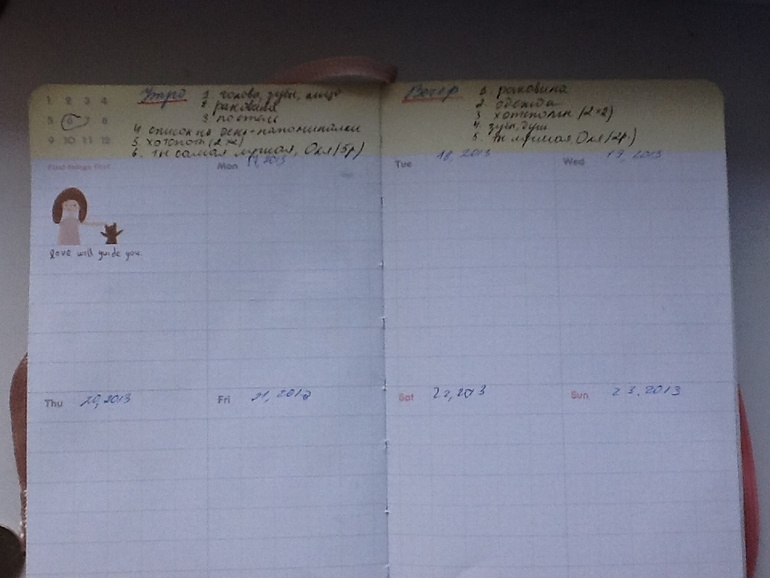 1 2 3 4
5 6 7 8
9 10 11 12
Утро 1 голова, зубы, лицо
2 раковина
3 постель
4 список на день-напоминалки
5. хотспоты (2×2)
6. ты самая лучшая, Оля (5р)
Вечер 1. раковина
2. одежда
3 хотспоты (2×2)
4. зубы, душ
5. ты лучшая, Оля (2р)
First things first
Mon 17, 2013
love will guide you
Tue 18, 2013
Wed 19, 2013
Thu 20, 2013
Fri 21, 2013
Sat 22, 2013
Sun 23, 2013